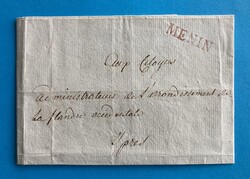 MENIN
Aux Citoyens
administrateurs de l'arrondissement de
La flandre occidentale
Ypres